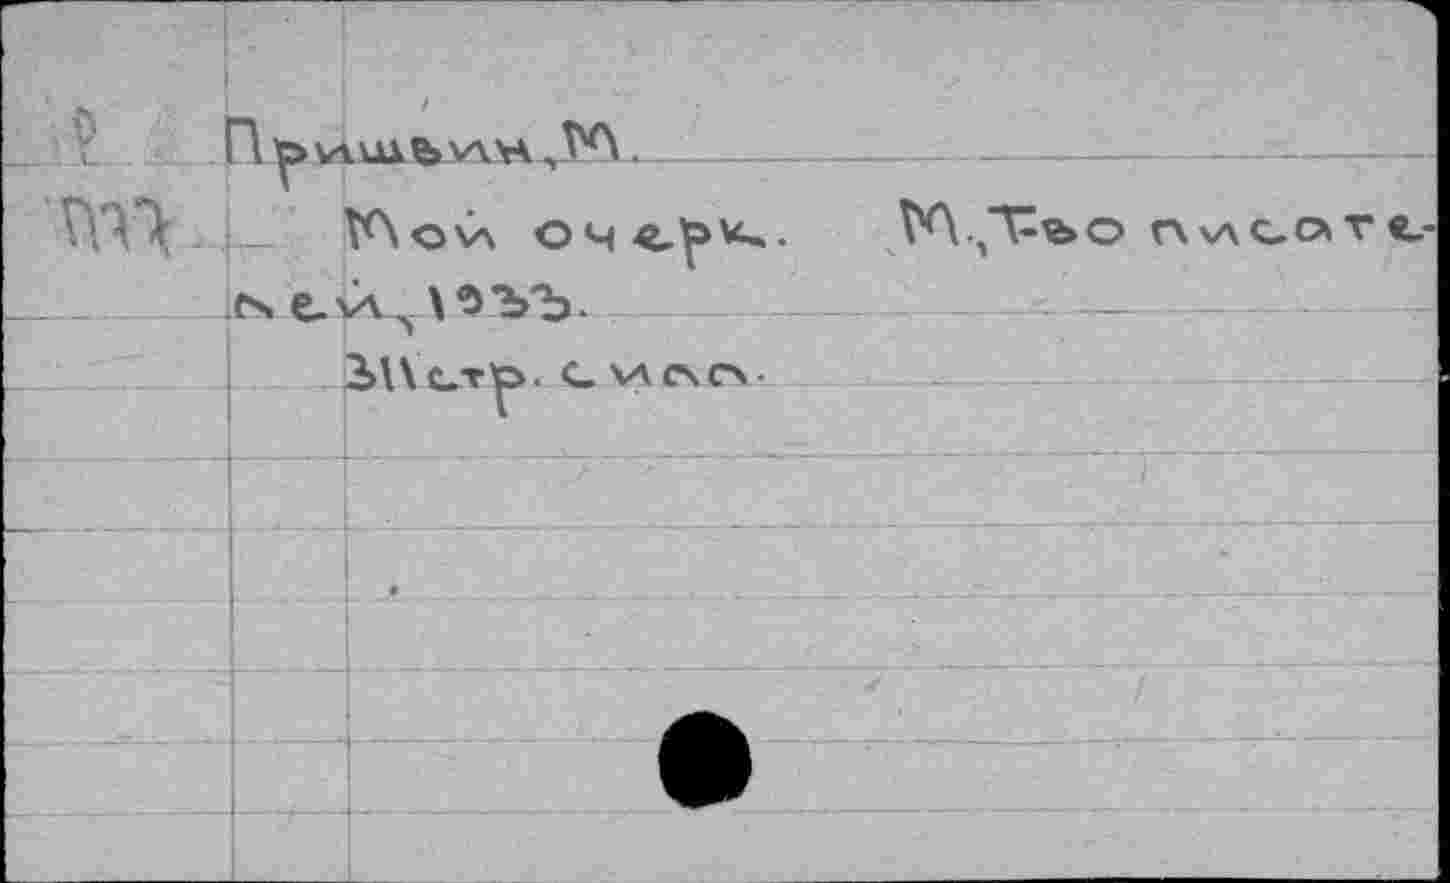 Пришвин, М.
Мой очерк. М., Т-во писате-
лей, 1933.
311 стр. с илл.